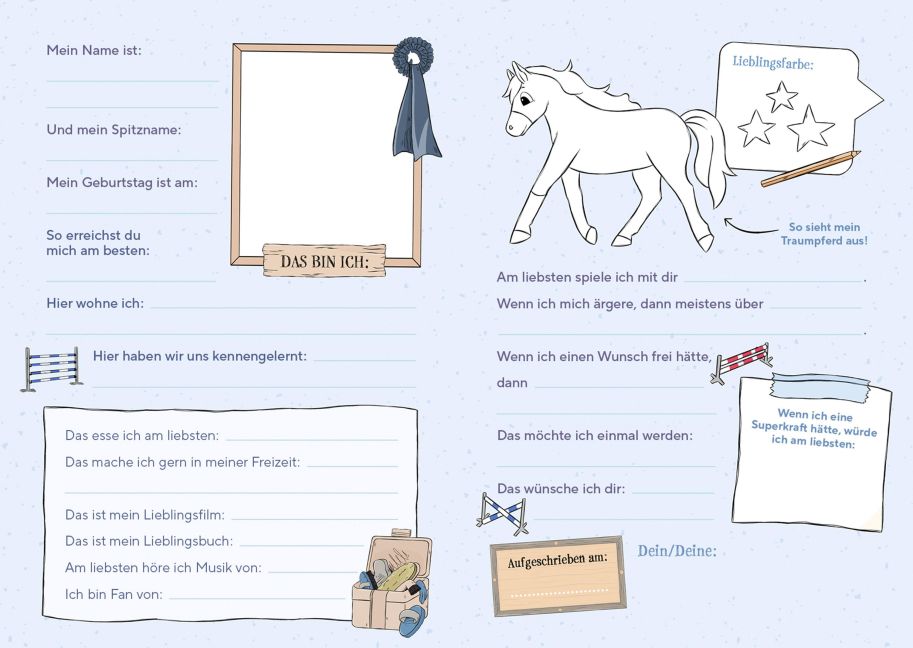 Mein Name ist:
Und mein Spitzname:
Mein Geburtstag ist am:
So erreichst du
mich am besten:
DAS BIN ICH:
Hier wohne ich:
Hier haben wir uns kennengelernt:
Das esse ich am liebsten:
Das mache ich gern in meiner Freizeit:
Das ist mein Lieblingsfilm:
Das ist mein Lieblingsbuch:
Am liebsten höre ich Musik von:
Ich bin Fan von:
Lieblingsfarbe:
So sieht mein
Traumpferd aus!
Am liebsten spiele ich mit dir .
Wenn ich mich ärgere, dann meistens über
.
Wenn ich einen Wunsch frei hätte,
dann
Das möchte ich einmal werden:
Das wünsche ich dir:
Wenn ich eine
Superkraft hätte, würde
ich am liebsten:
Aufgeschrieben am:
Dein/Deine: